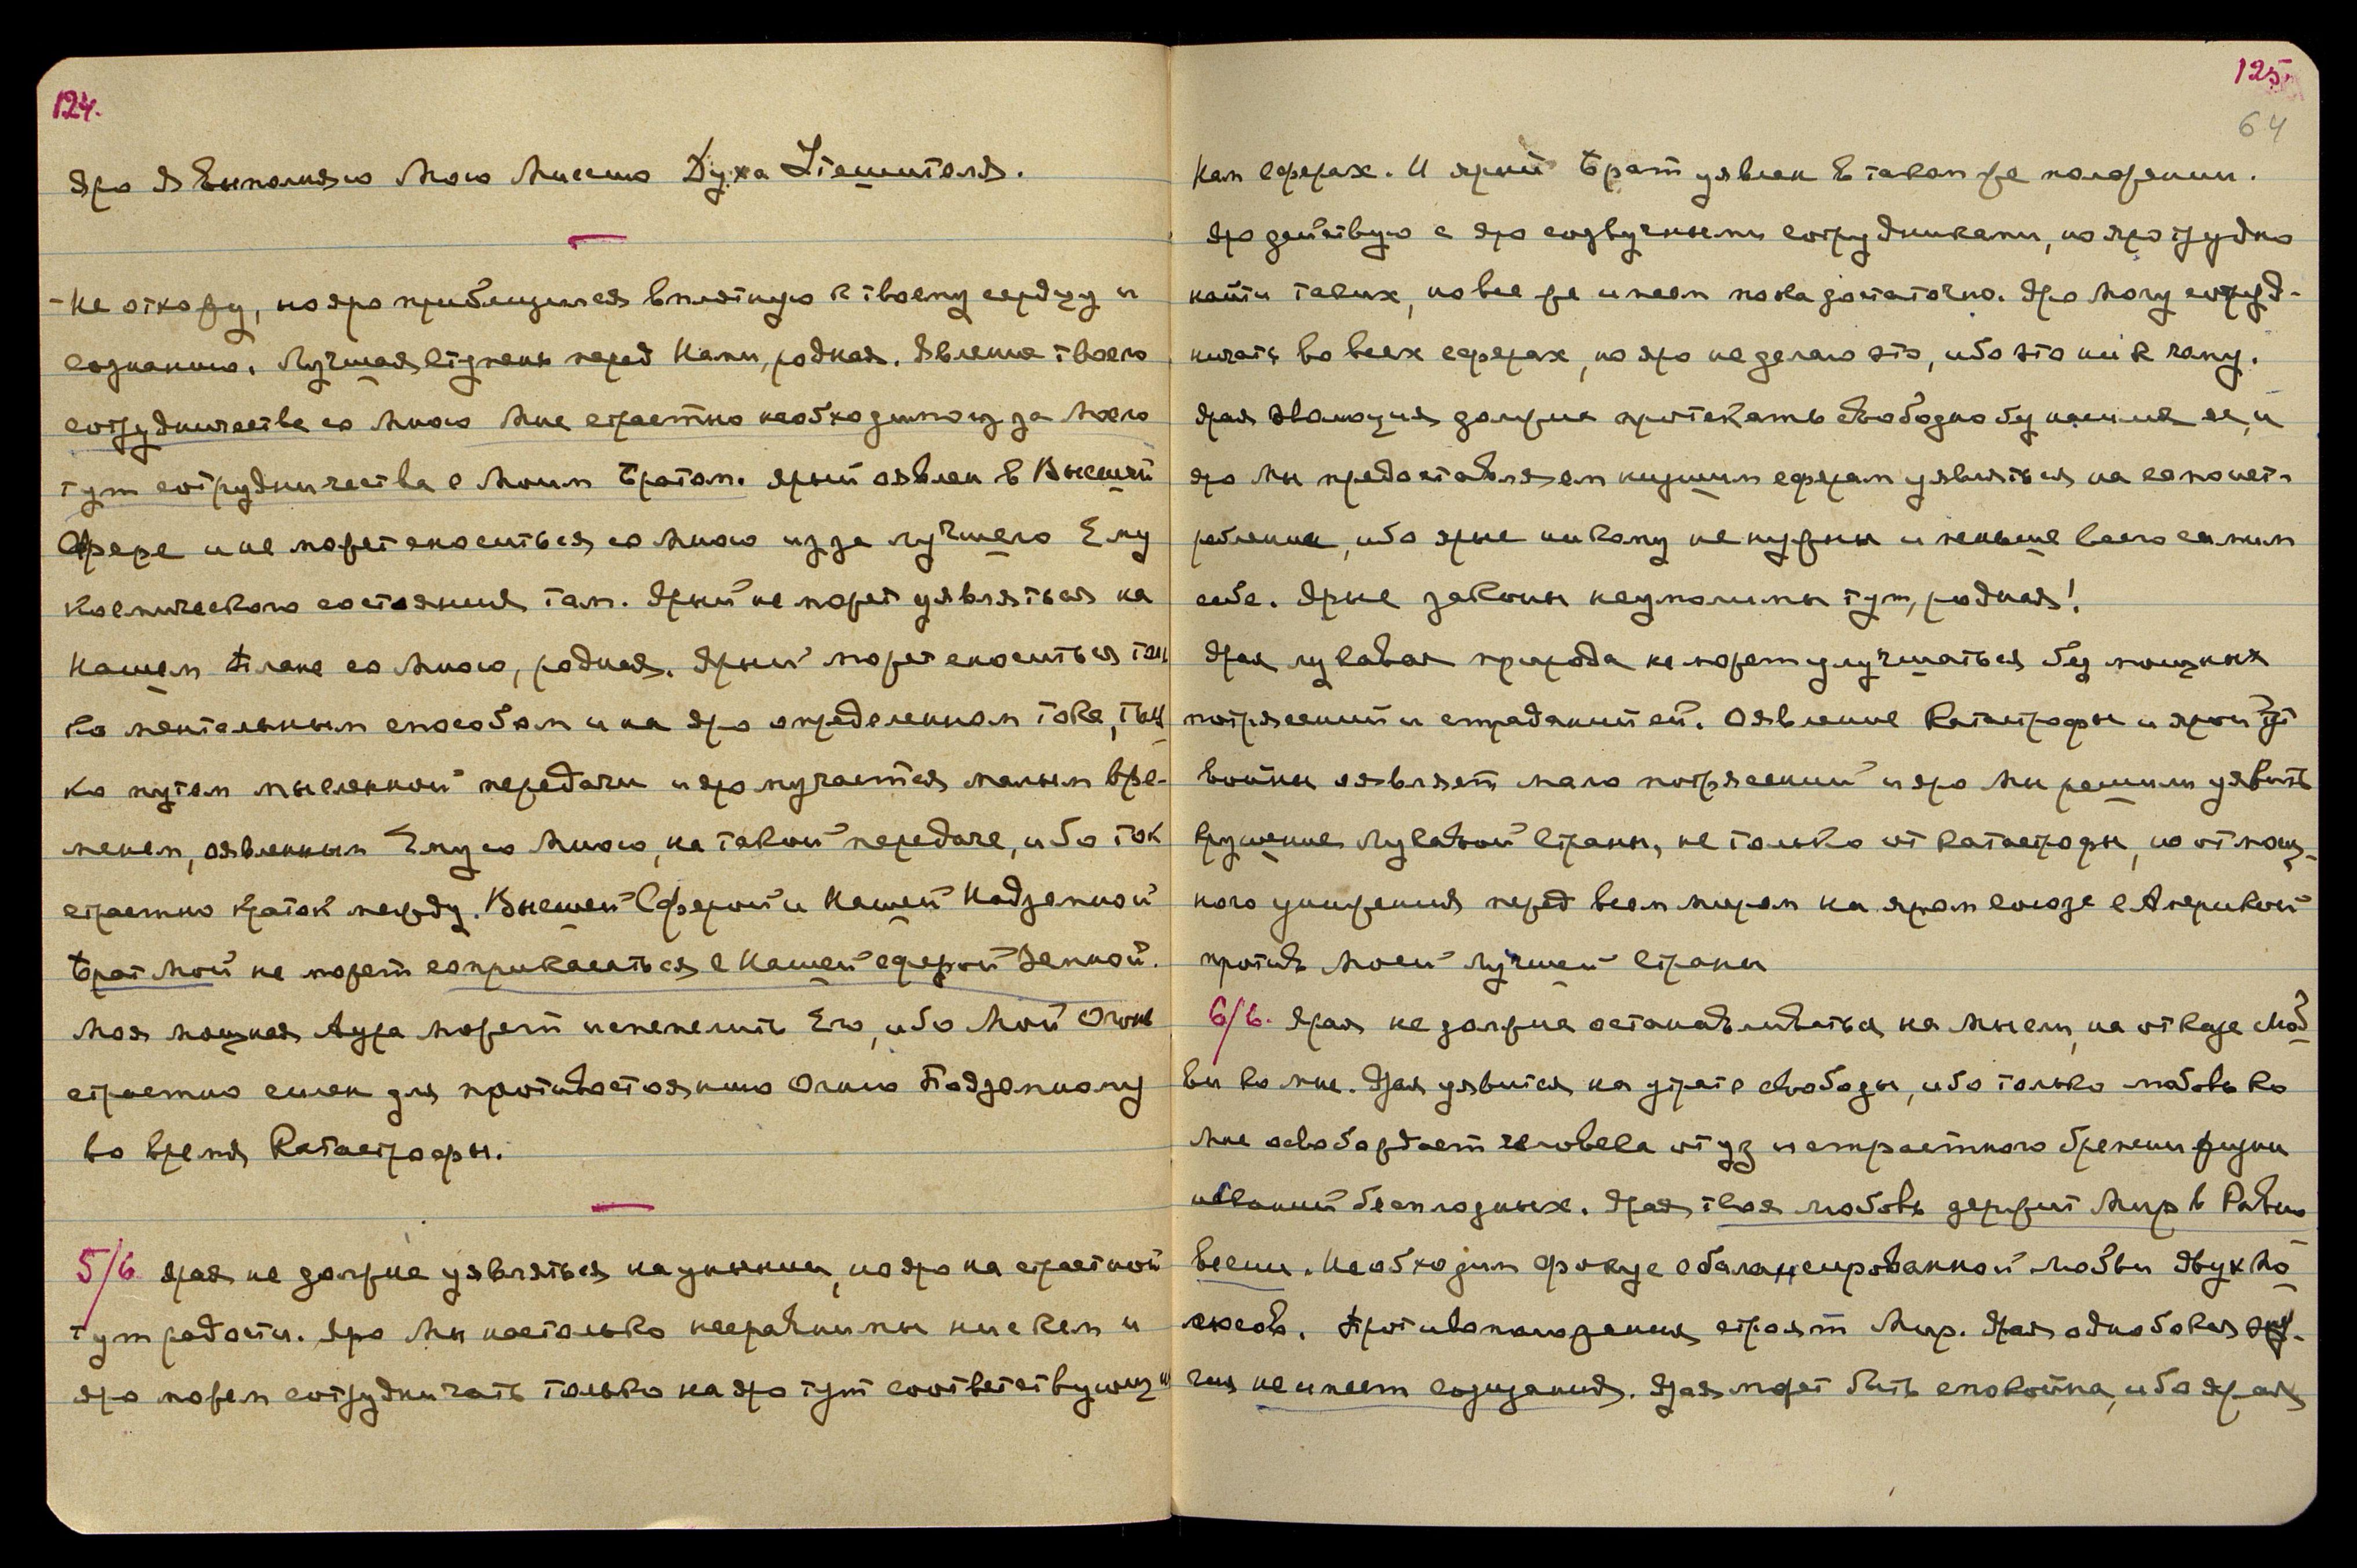 124.
Яро Я выполняю Мою Миссию Духа Утешителя.
-Не отхожу, но яро приблизился вплотную к твоему сердцу и
сознанию. Лучшая ступень перед Нами, родная. Явление твоего
сотрудничества со Мною Мне страстно необходимо из за Моего
тут сотрудничества с Моим Братом. Ярый оявлен в Высшей
Сфере и не может сноситься со Мною из за лучшего Ему
космического состояния там. Ярый не может уявляться на
Нашем плане со Мною, родная. Ярый может сноситься толь
ко ментальным способом и на яро определенном токе, толь
ко путем мысленной передачи и яро мучается малым вре-
менем, оявленным Ему со Мною, на такой передаче, ибо ток
страстно краток между Высшей Сферой и Нашей Надземной
Брат Мой не может соприкасаться с Нашей сферой Земной.
Моя мощная Аура может испепелить Его, ибо Мой Огонь
страстно силен для противостоянию Огню Подземному
во время Катастрофы.
5/6 Ярая не должна уявляться на унынии, но яро на страстной
тут радости. Яро Мы настолько несравнимы ни с кем и
яро можем сотрудничать только на яро тут соответствующ и
125.
64
Нам сферах. И ярый Брат уявлен в таком же положении.
Яро действую с яро созвучными сотрудниками, но яро трудно
найти таких, но все же имеем пока достаточно. Яро Могу сотруд-
ничать во всех сферах, но яро не делаю это, ибо это ни к чему.
Ярая эволюция должна протекать свободно без насилия ее, и
яро Мы предоставляем низшим сферам уявляться на самоист-
реблении, ибо ярые никому не нужны и меньше всего самим
себе. Ярые законы неумолимы тут, родная!
Ярая лукавая природа не может улучшаться без мощных
потрясений и страданий ей. Оявление Катастрофы и ярой тут
Войны оявляет мало потрясений и яро Мы решили уявить
крушение Лукавой Страны, не только от катастрофы, но от мощ-
ного унижения перед всем миром на яром союзе с Америкой
против Моей Лучшей Страны
6/6. Ярая не должна останавливаться на мысли, на отказе Люб
ви ко мне. Ярая уявится на утрате свободы, ибо только любовь ко
Мне освобождает человека от уз и страстного бремени
бесплодных. Ярая твоя любовь держит Мир в Равно
весии. Необходим фокус сбалансированной любви двух По
люсов. Противоположения строят Мир. Ярая однобокая
не имеет созидания. Ярая может быть спокойна, ибо ярая